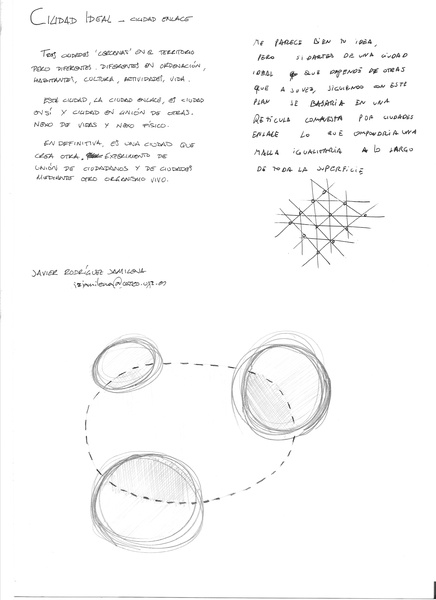 CIUDAD IDEAL — CIUDAD ENLACE
TRES CIUDADES 'CERCANAS' EN EL TERRITORIO
PERO DIFERENTES. DIFERENTES EN ORDENACIÓN,
HABITANTES, CULTURA, ACTIVIDADES, VIDA.
ESTA CIUDAD, LA CIUDAD ENLACE, ES CIUDAD
EN SÍ Y CIUDAD EN UNIÓN DE OTRAS.
NEXO DE VIDAS Y NEXO FÍSICO.
EN DEFINITIVA, ES UNA CIUDAD QUE
CREA OTRA. EXPERIMENTO DE
UNIÓN DE CIUDADANOS Y DE CIUDADES
MEDIANTE OTRO ORGANISMO VIVO.
JAVIER RODRÍGUEZ JAMILENA
ME PARECE BIEN TU IDEA,
PERO SI PARTES DE UNA CIUDAD
IDEAL QUE DEPENDE DE OTRAS
QUE A SU VEZ, SIGUIENDO CON ESTE
PLAN SE BASARIA EN UNA
RETÍCULA COMPUESTA POR CIUDADES
ENLACE LO QUE COMPONDRIA UNA
MALLA IGUALITARIA A LO LARGO
DE TODA LA SUPERFICIE